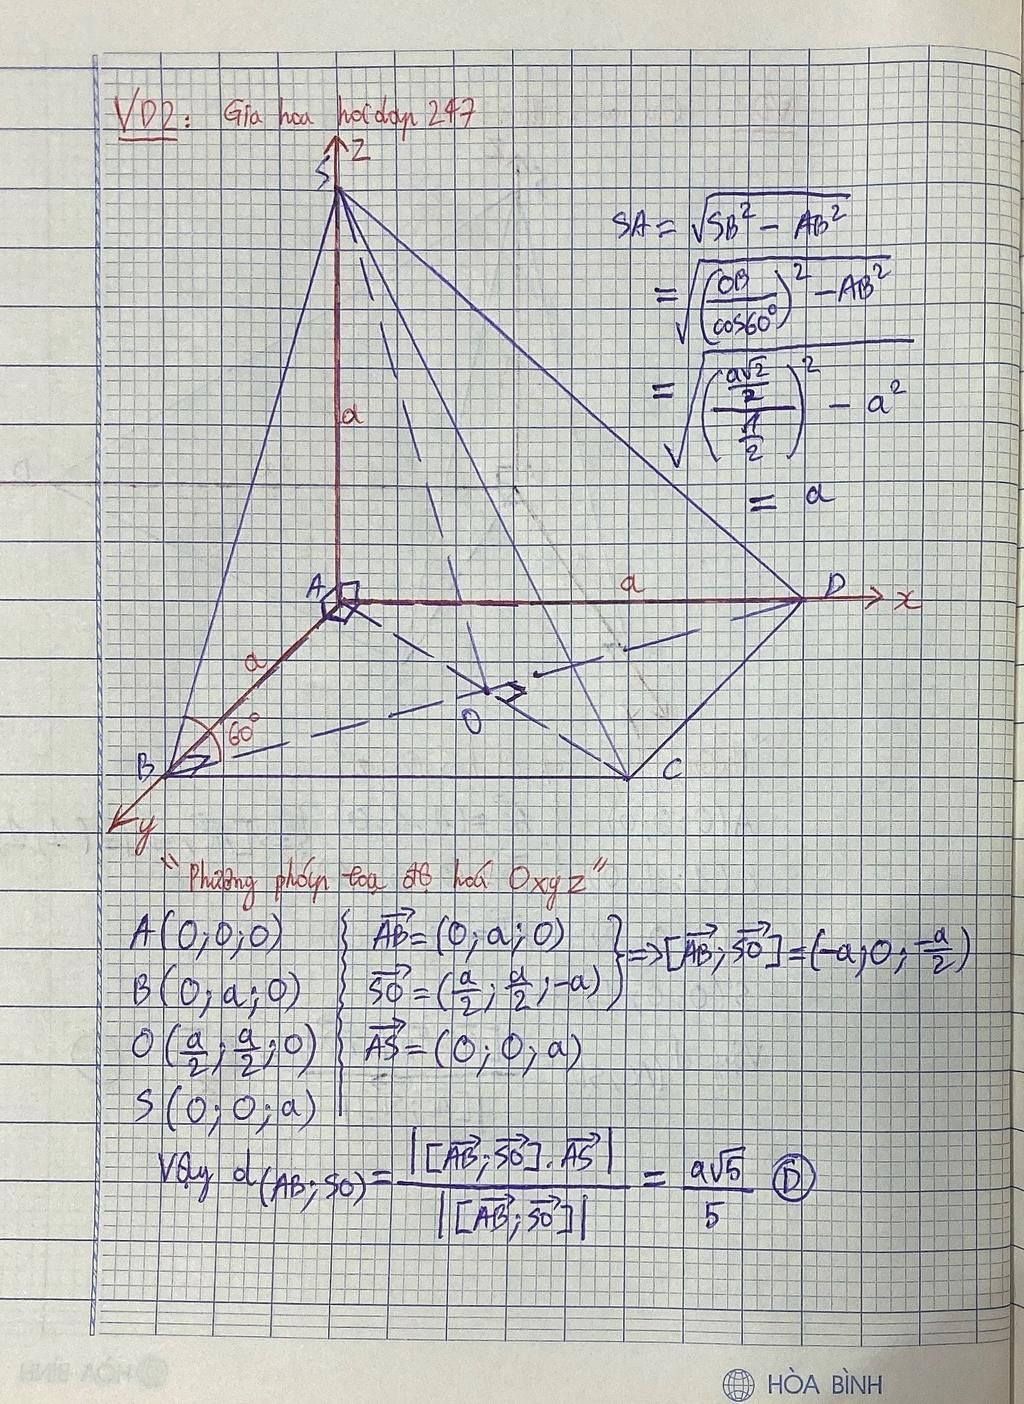 VD2: Gia hoa hoidap 247
Z
S
SA = √(SB² − AB²)
= √((OB/cos60°)² − AB²)
= √(((a√2/2)/(1/2))² − a²)
= a
a
A
a
D
x
a
60°
O
B
C
y
"Phương pháp toạ độ hoá Oxyz"
A(0;0;0) { AB→ = (0;a;0) } => [AB→; SO→] = (-a; 0; -a/2)
B(0;a;0) { SO→ = (a/2; a/2; -a)
O(a/2; a/2; 0) { AS→ = (0; 0; a)
S(0;0;a)
Vậy d(AB; SO) = |[AB→; SO→].AS→| / |[AB→; SO→]| = a√5/5 Ⓓ
HÒA BÌNH